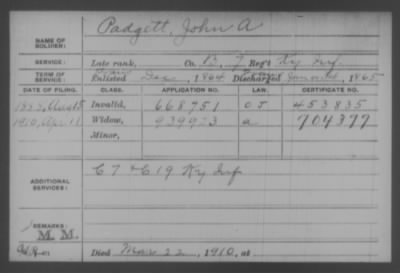 Padgett, John A
NAME OF SOLDIER:
SERVICE: Late rank, Co. B, 7 Reg't Ky Inf.
TERM OF SERVICE: Enlisted Dec 1864 Discharged, 1865
DATE OF FILING. CLASS. APPLICATION NO. LAW. CERTIFICATE NO.
Aug 5 Invalid, 668751 453835
1910, Apr. 11 Widow, 939923 a 704377
Minor,
ADDITIONAL SERVICES: C 7 & C 19 Ky Inf
REMARKS:
M. M.
Died Mar 22, 1910, at